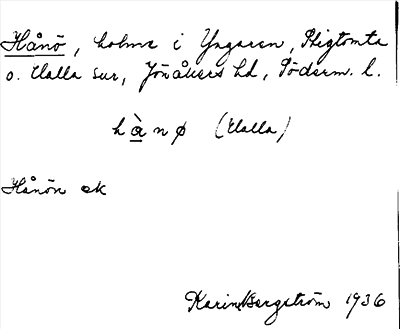 Hånö, holme i Yngaren, Stigtomta
o. Halla snr, Jönåkers hd, Söderm. l.
hànø (Halla)
Hånön ek
Karin Bergström 1936